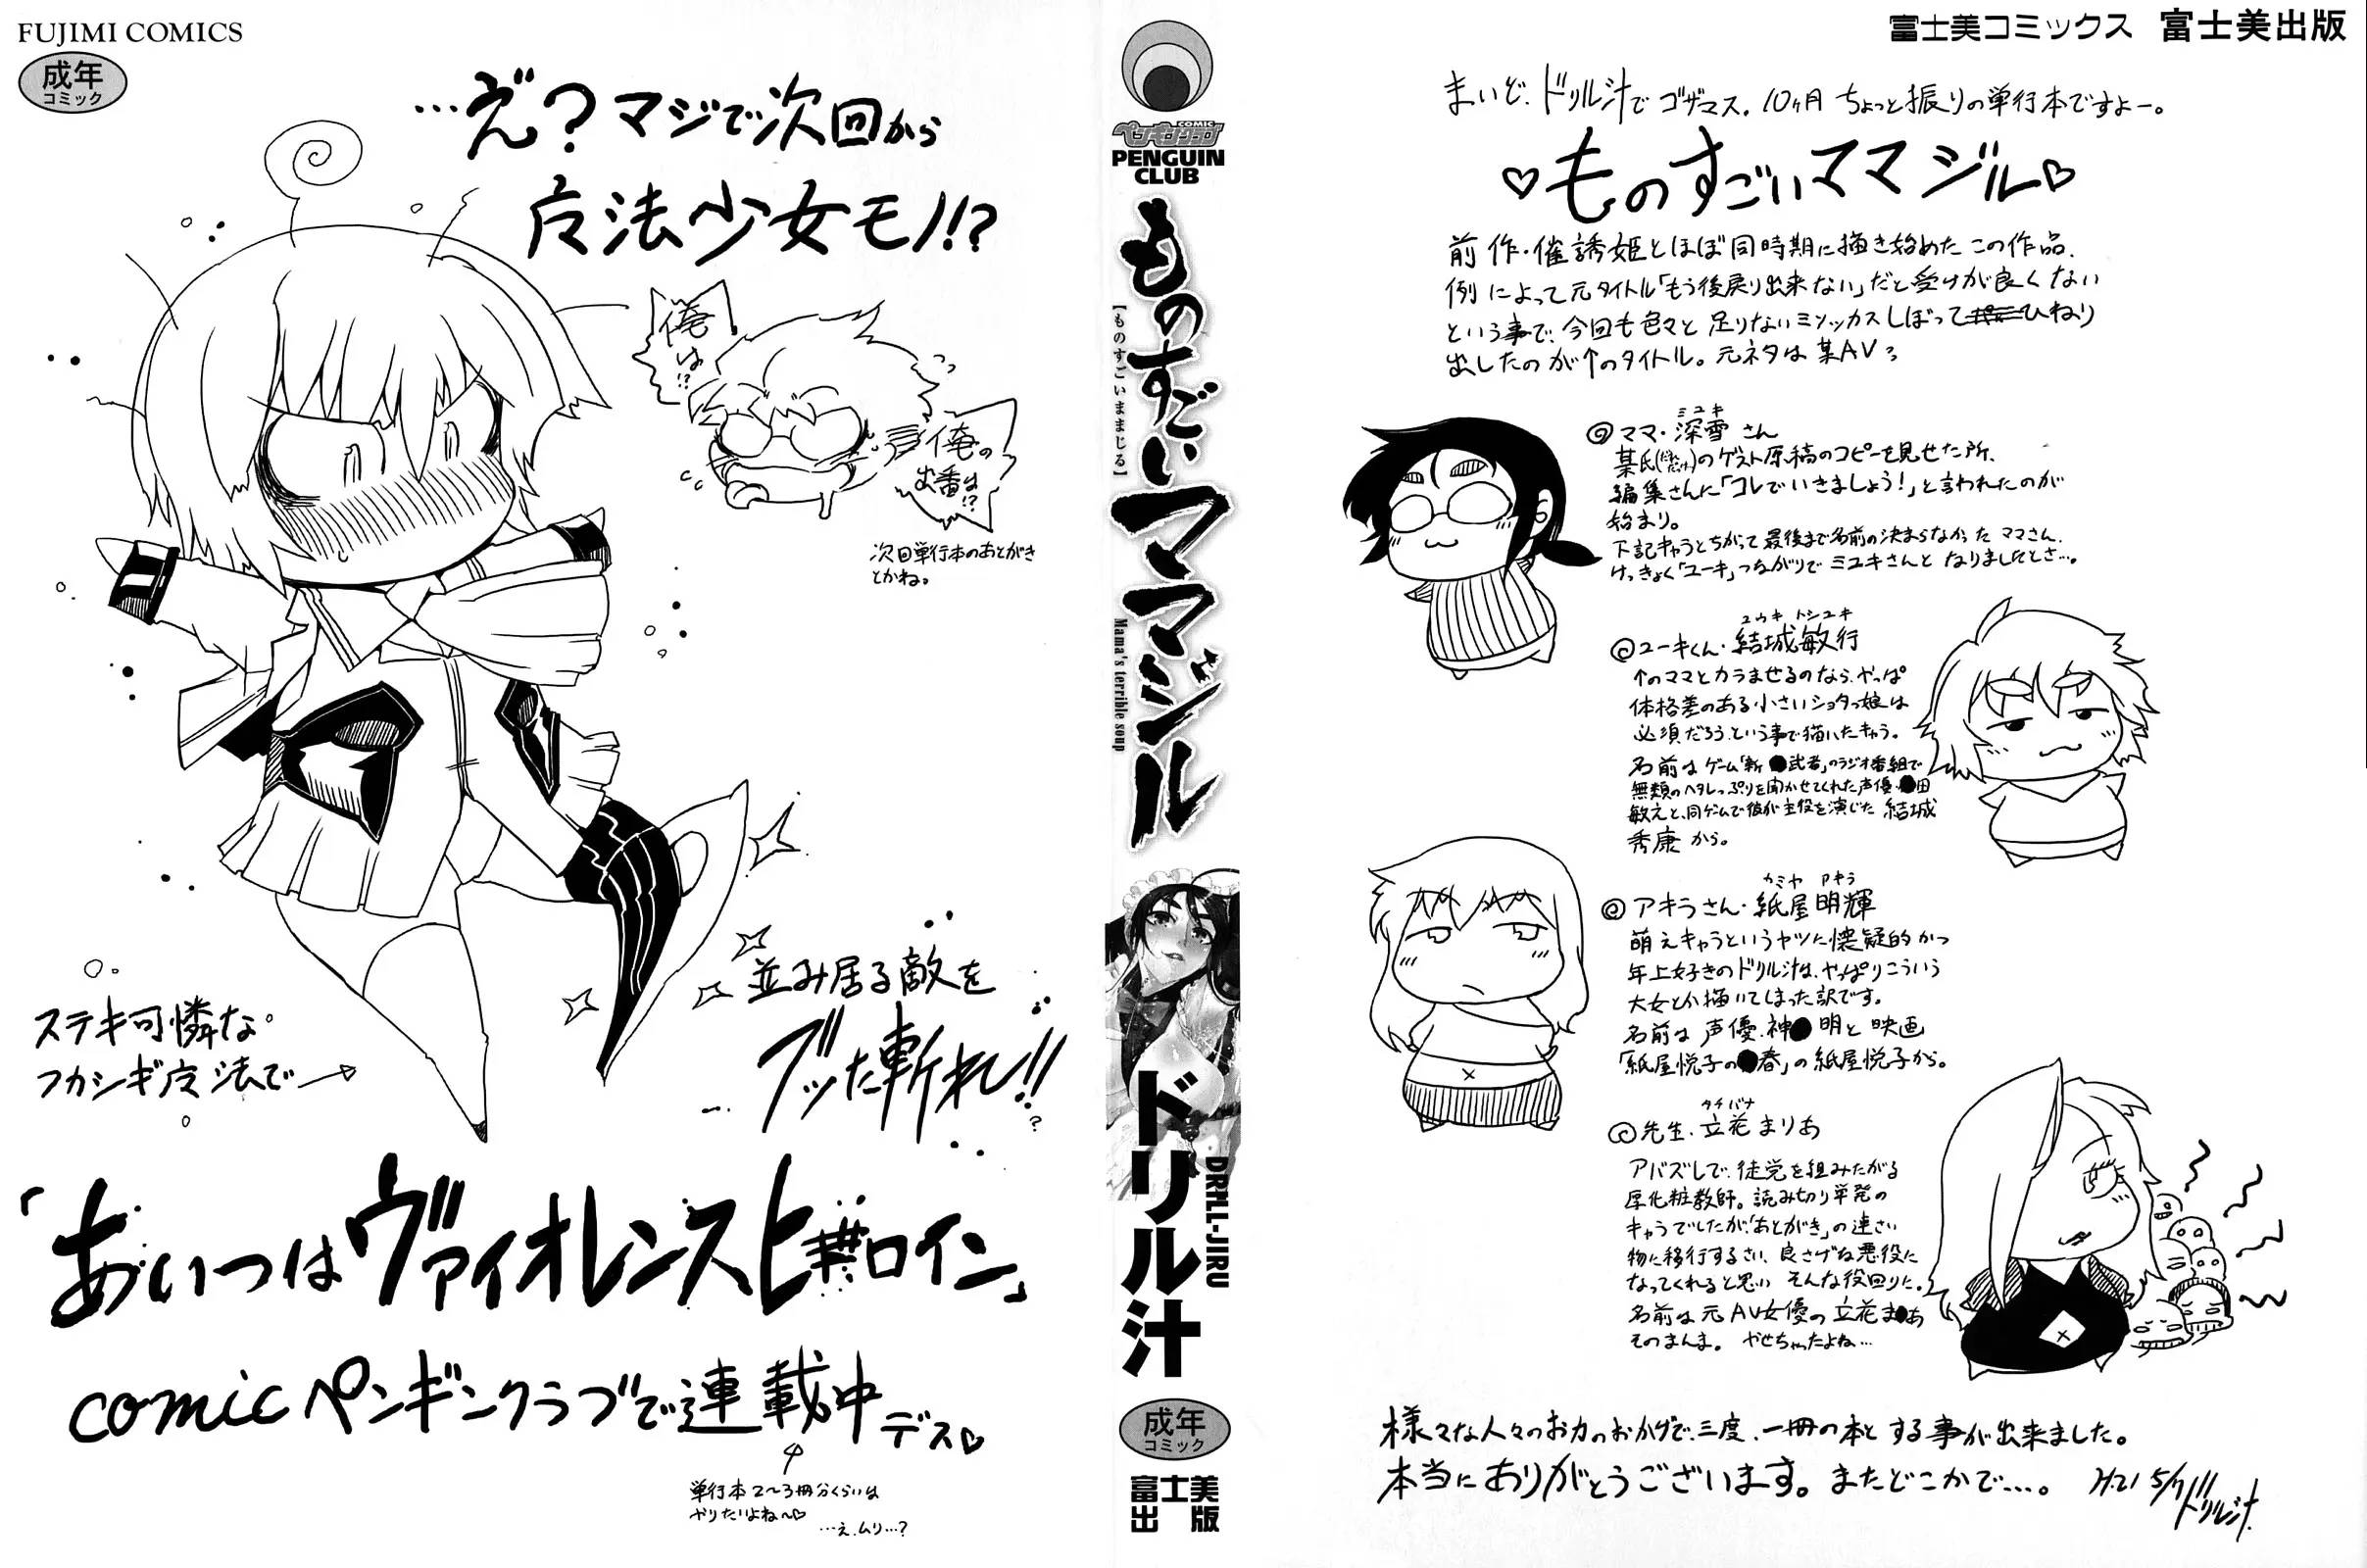 FUJIMI COMICS
成年
コミック
…え゛?マジで次回から
魔法少女モノ!?
俺
は!?
俺の
出番は!?
次回単行本のあとがき
とかね。
ステキ可憐な
フカシギ魔法で
並み居る敵を
ブッた斬れ!!
…?
「あいつはヴァイオレンスヒロイン」
comicペンギンクラブで連載中デス♡
単行本2〜3冊分くらいは
やりたいよね〜♡
…え、ムリ…?
COMIC
ペンギンクラブ
PENGUIN
CLUB
ものすごいママジル
【ものすごいままじる】
Mama's terrible soup
ドリル汁
DRILL-JIRU
成年
コミック
富士美
出版
富士美コミックス 富士美出版
まいど、ドリル汁でゴザマス。10ヶ月ちょっと振りの単行本ですよー。
♡ものすごいママジル♡
前作・催誘姫とほぼ同時期に描き始めたこの作品、
例によって元タイトル「もう後戻り出来ない」だと受けが良くない
という事で、今回も色々と足りないミソッカスしぼってひねり
出したのが↑のタイトル。元ネタは某AV。
ミユキ
◎ママ・深雪さん
某氏のゲスト原稿のコピーを見せた所、
編集さんに「コレでいきましょう!」と言われたのが
始まり。
下記キャラとちがって最後まで名前の決まらなかったママさん。
けっきょく「ユーキ」つながりでミユキさんとなりましたとさ…。
ユウキ トシユキ
◎ユーキくん・結城敏行
↑のママとカラませるのなら、やっぱ
体格差のある小さいショタっ娘は
必須だろう、という事で描いたキャラ。
名前はゲーム「斬●武者」のラジオ番組で
無類のヘタレっぷりを聞かせてくれた声優・●田
敏えと、同ゲームで彼が主役を演じた結城
秀康から。
カミヤ アキラ
◎アキラさん・紙屋明輝
萌えキャラというヤツに懐疑的かつ
年上好きのドリル汁は、やっぱりこういう
大女とか描いてしまった訳です。
名前は声優、神●明と映画
「紙屋悦子の●春」の紙屋悦子から。
タチバナ
◎先生・立花まりあ
アバズレで、徒党を組みたがる
厚化粧教師。読み切り単発の
キャラでしたが、「あとがき」の連さい
物に移行するさい、良さげな悪役に
なってくれると思い そんな役回りに。
名前は元AV女優の立花ま●あ
そのまんま。 やせちゃったよね…
様々な人々のお力のおかげで、三度、一冊の本とする事が出来ました。
本当にありがとうございます。またどこかで…。 H.21 5/7
ドリル汁